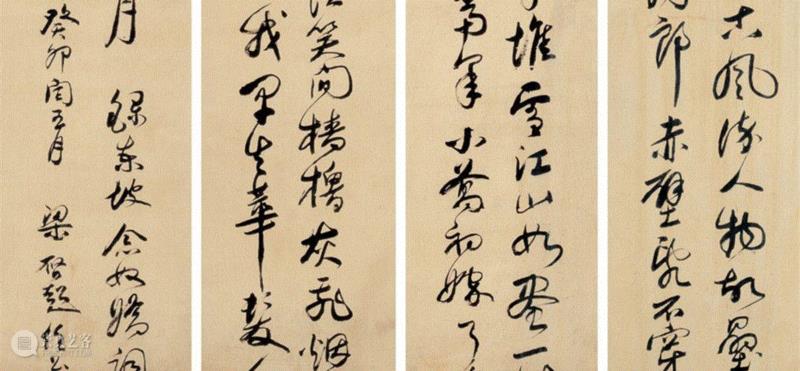 古風流人物故壘
郎赤壁亂石穿
堆雪江山如畫一
當年小喬初嫁了
笑間檣櫓灰飛烟
我早生華髮人
月 錄東坡念奴嬌詞
癸卯閏五月 梁啓超